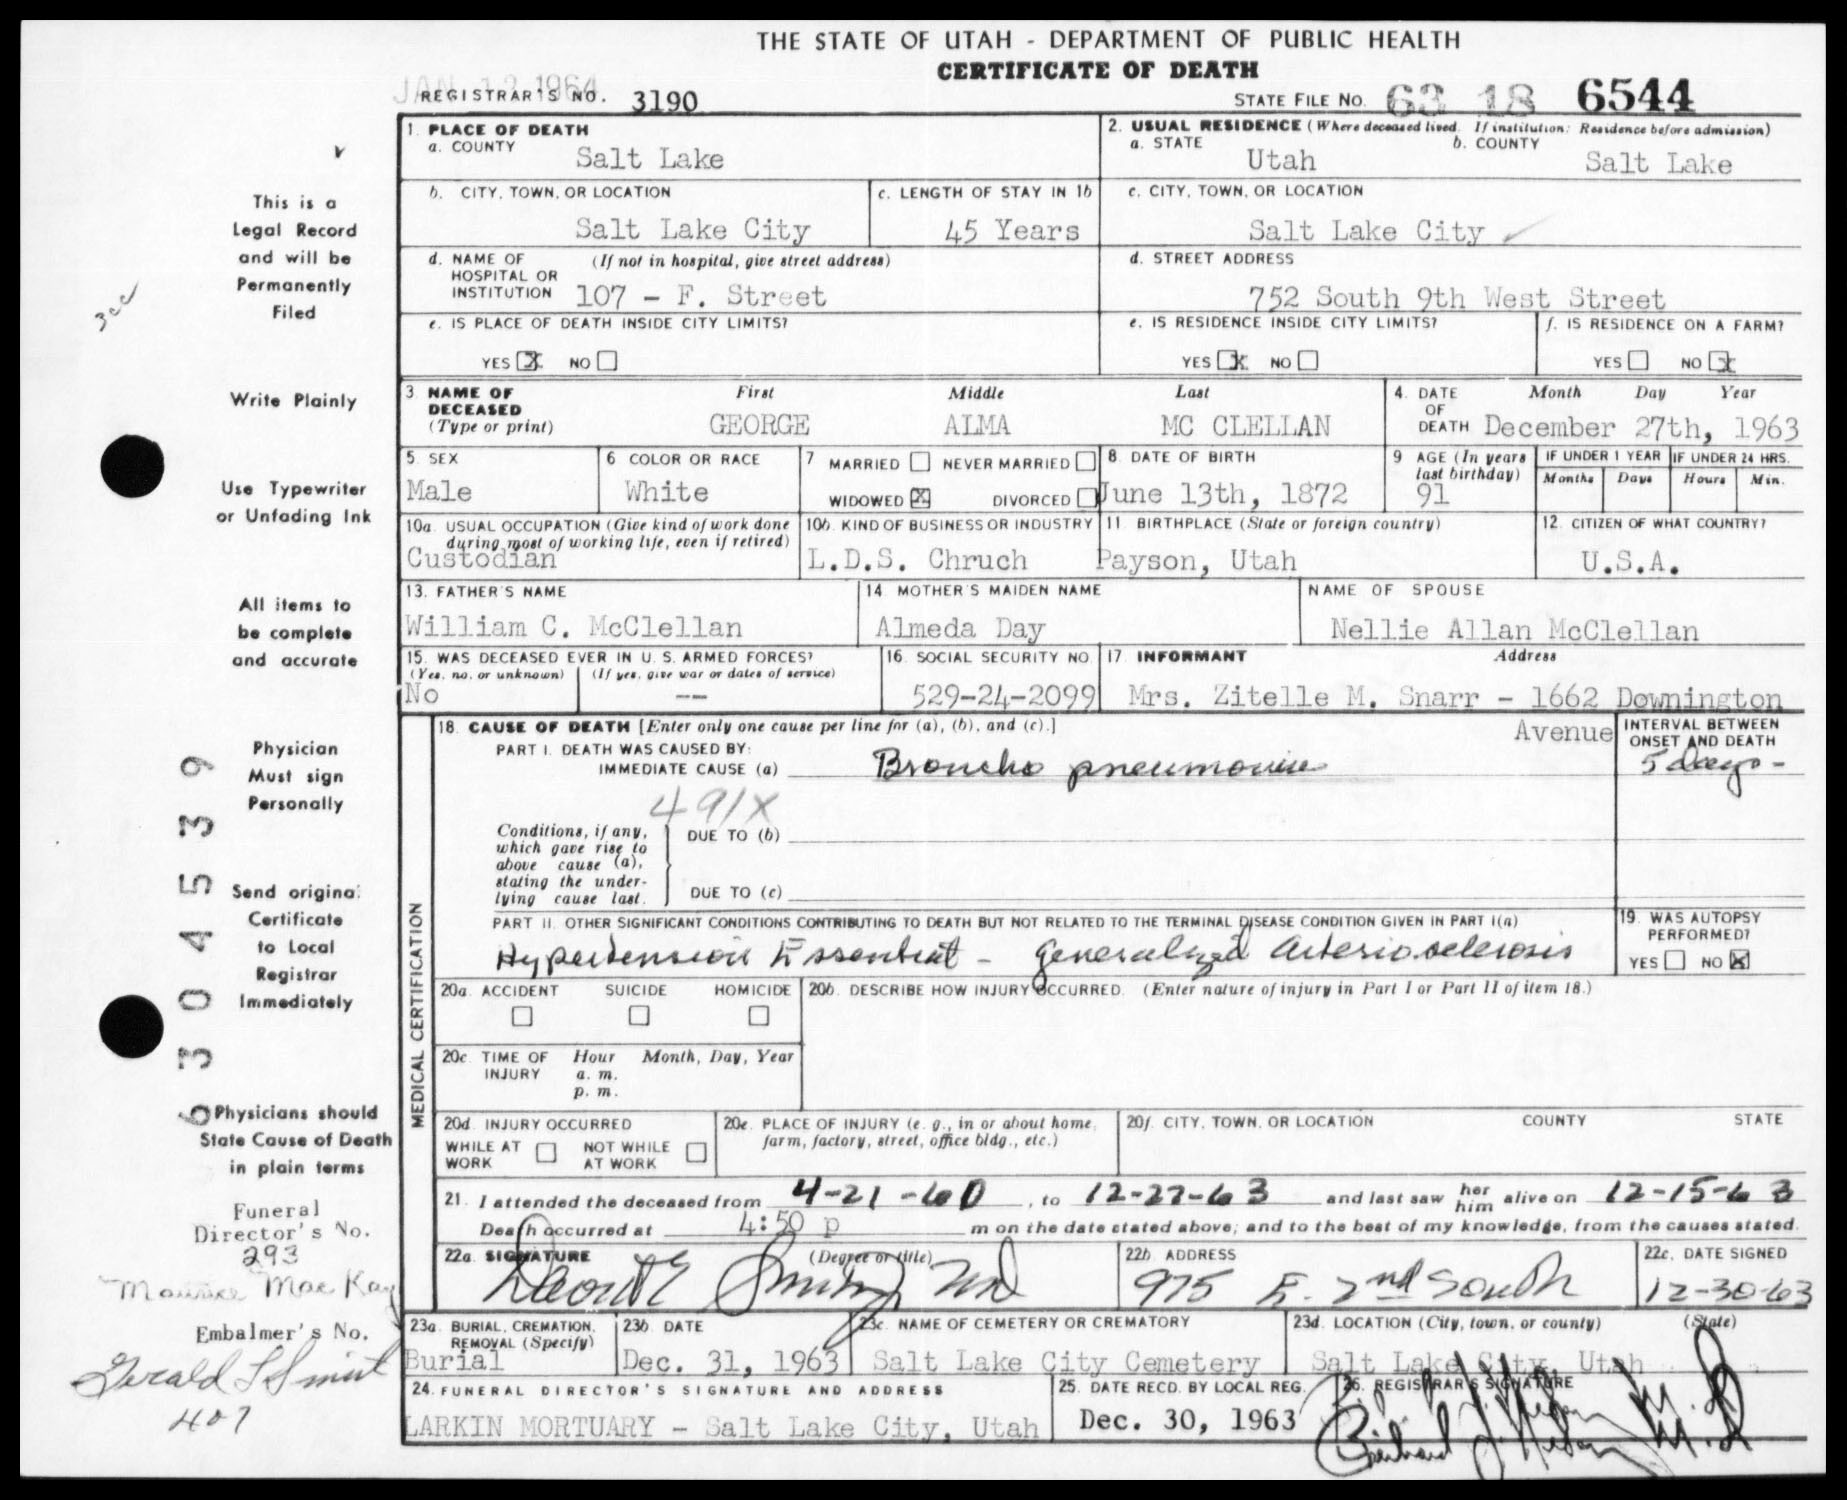 THE STATE OF UTAH - DEPARTMENT OF PUBLIC HEALTH
CERTIFICATE OF DEATH
JAN 13 1964
REGISTRAR'S NO. 3190
STATE FILE NO. 63 18 6544
1. PLACE OF DEATH
a. COUNTY Salt Lake
2. USUAL RESIDENCE (Where deceased lived. If institution: Residence before admission)
a. STATE Utah b. COUNTY Salt Lake
b. CITY, TOWN, OR LOCATION Salt Lake City
c. LENGTH OF STAY IN 1b 45 Years
c. CITY, TOWN, OR LOCATION Salt Lake City
d. NAME OF HOSPITAL OR INSTITUTION (If not in hospital, give street address) 107 - F. Street
d. STREET ADDRESS 752 South 9th West Street
e. IS PLACE OF DEATH INSIDE CITY LIMITS?
YES X NO
e. IS RESIDENCE INSIDE CITY LIMITS?
YES X NO
f. IS RESIDENCE ON A FARM?
YES NO X
3. NAME OF DECEASED (Type or print)
First Middle Last
GEORGE ALMA MC CLELLAN
4. DATE OF DEATH Month Day Year
December 27th, 1963
5. SEX Male
6 COLOR OR RACE White
7 MARRIED NEVER MARRIED
WIDOWED X DIVORCED
8 DATE OF BIRTH June 13th, 1872
9 AGE (In years last birthday) 91
IF UNDER 1 YEAR Months Days
IF UNDER 24 HRS. Hours Min.
10a. USUAL OCCUPATION (Give kind of work done during most of working life, even if retired)
Custodian
10b. KIND OF BUSINESS OR INDUSTRY
L.D.S. Chruch
11 BIRTHPLACE (State or foreign country)
Payson, Utah
12. CITIZEN OF WHAT COUNTRY?
U.S.A.
13. FATHER'S NAME
William C. McClellan
14 MOTHER'S MAIDEN NAME
Almeda Day
NAME OF SPOUSE
Nellie Allan McClellan
15. WAS DECEASED EVER IN U. S. ARMED FORCES?
(Yes, no, or unknown) (If yes, give war or dates of service)
No --
16. SOCIAL SECURITY NO.
529-24-2099
17. INFORMANT Address
Mrs. Zitelle M. Snarr - 1662 Downington
Avenue
18. CAUSE OF DEATH [Enter only one cause per line for (a), (b), and (c).]
INTERVAL BETWEEN ONSET AND DEATH
PART I. DEATH WAS CAUSED BY:
IMMEDIATE CAUSE (a) Broncho pneumonia 5 days -
491X
Conditions, if any, which gave rise to above cause (a), stating the underlying cause last.
DUE TO (b)
DUE TO (c)
PART II. OTHER SIGNIFICANT CONDITIONS CONTRIBUTING TO DEATH BUT NOT RELATED TO THE TERMINAL DISEASE CONDITION GIVEN IN PART I(a)
Hypertension Essential - generalized arteriosclerosis
19. WAS AUTOPSY PERFORMED?
YES NO X
20a. ACCIDENT SUICIDE HOMICIDE
20b. DESCRIBE HOW INJURY OCCURRED. (Enter nature of injury in Part I or Part II of item 18.)
20c. TIME OF INJURY Hour Month, Day, Year
a. m.
p. m.
20d. INJURY OCCURRED
WHILE AT WORK NOT WHILE AT WORK
20e. PLACE OF INJURY (e. g., in or about home, farm, factory, street, office bldg., etc.)
20f. CITY, TOWN, OR LOCATION COUNTY STATE
MEDICAL CERTIFICATION
21. I attended the deceased from 4-21-60, to 12-27-63 and last saw her him alive on 12-15-63
Death occurred at 4:50 p m on the date stated above; and to the best of my knowledge, from the causes stated.
22a. SIGNATURE (Degree or title)
David E Smith MD
22b. ADDRESS
975 E. 2nd South
22c. DATE SIGNED
12-30-63
23a. BURIAL, CREMATION, REMOVAL (Specify)
Burial
23b. DATE
Dec. 31, 1963
23c. NAME OF CEMETERY OR CREMATORY
Salt Lake City Cemetery
23d. LOCATION (City, town, or county) (State)
Salt Lake City, Utah
24. FUNERAL DIRECTOR'S SIGNATURE AND ADDRESS
LARKIN MORTUARY - Salt Lake City, Utah
25. DATE RECD. BY LOCAL REG.
Dec. 30, 1963
26. REGISTRAR'S SIGNATURE
M.D.
This is a
Legal Record
and will be
Permanently
Filed
3cc
Write Plainly
Use Typewriter
or Unfading Ink
All items to
be complete
and accurate
Physician
Must sign
Personally
Send original
Certificate
to Local
Registrar
Immediately
Physicians should
State Cause of Death
in plain terms
6 3 0 4 5 3 9
Funeral
Director's No.
293
Maurice MacKay
Embalmer's No.
Gerald L Smist
407